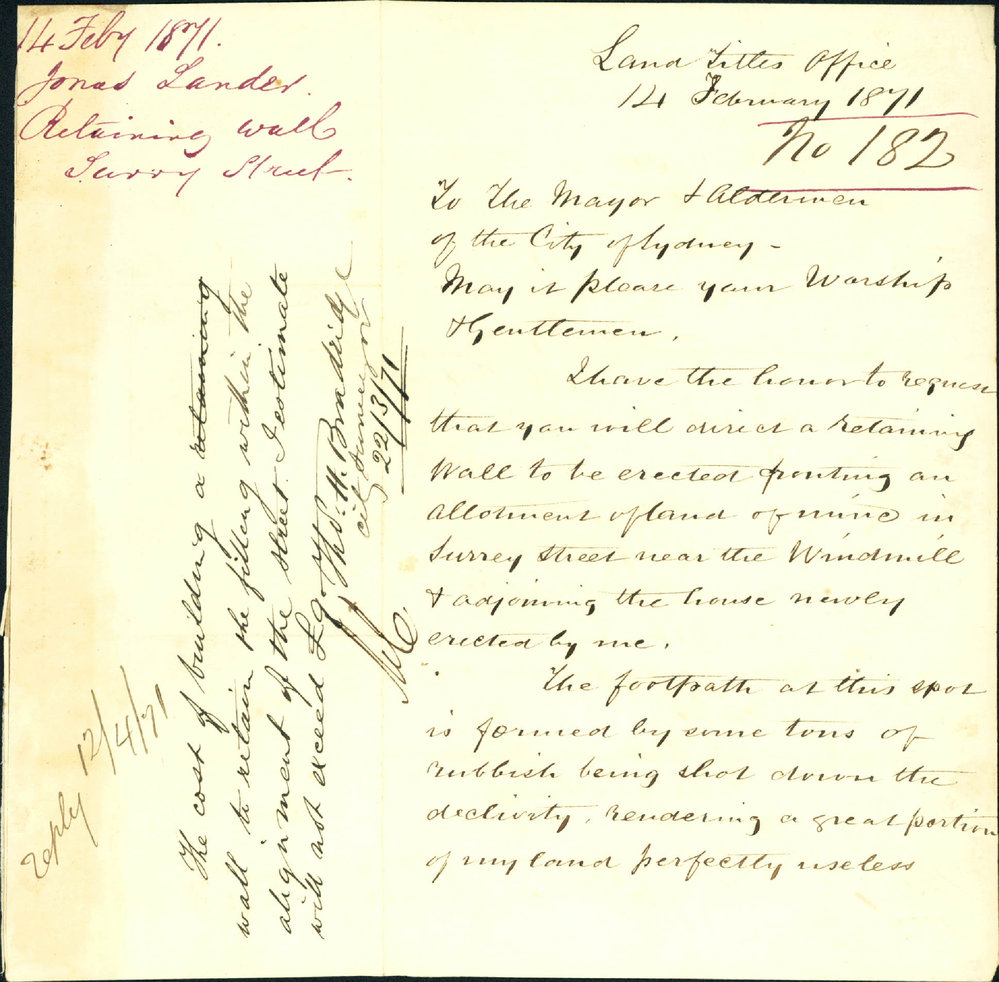 14 Feby 1871.
Jonas Lander.
Retaining Wall
Surry Street.
Land Titles Office
14 February 1871
No 182
To The Mayor & Aldermen
of the City of Sydney -
May it please your Worship
& Gentlemen,
I have the honor to request
that you will direct a retaining
Wall to be erected fronting an
allotment of land of mine in
Surrey Street near the Windmill
& adjoining the house newly
erected by me.
The footpath at this spot
is formed by some tons of
rubbish being shot down the
declivity, rendering a great portion
of my land perfectly useless
The cost of building a retaining
wall to retain the filling within the
alignment of the street I estimate
will not exceed £90
Thos. H. Bradridge
City Surveyor
22/3/71
reply 12/4/71